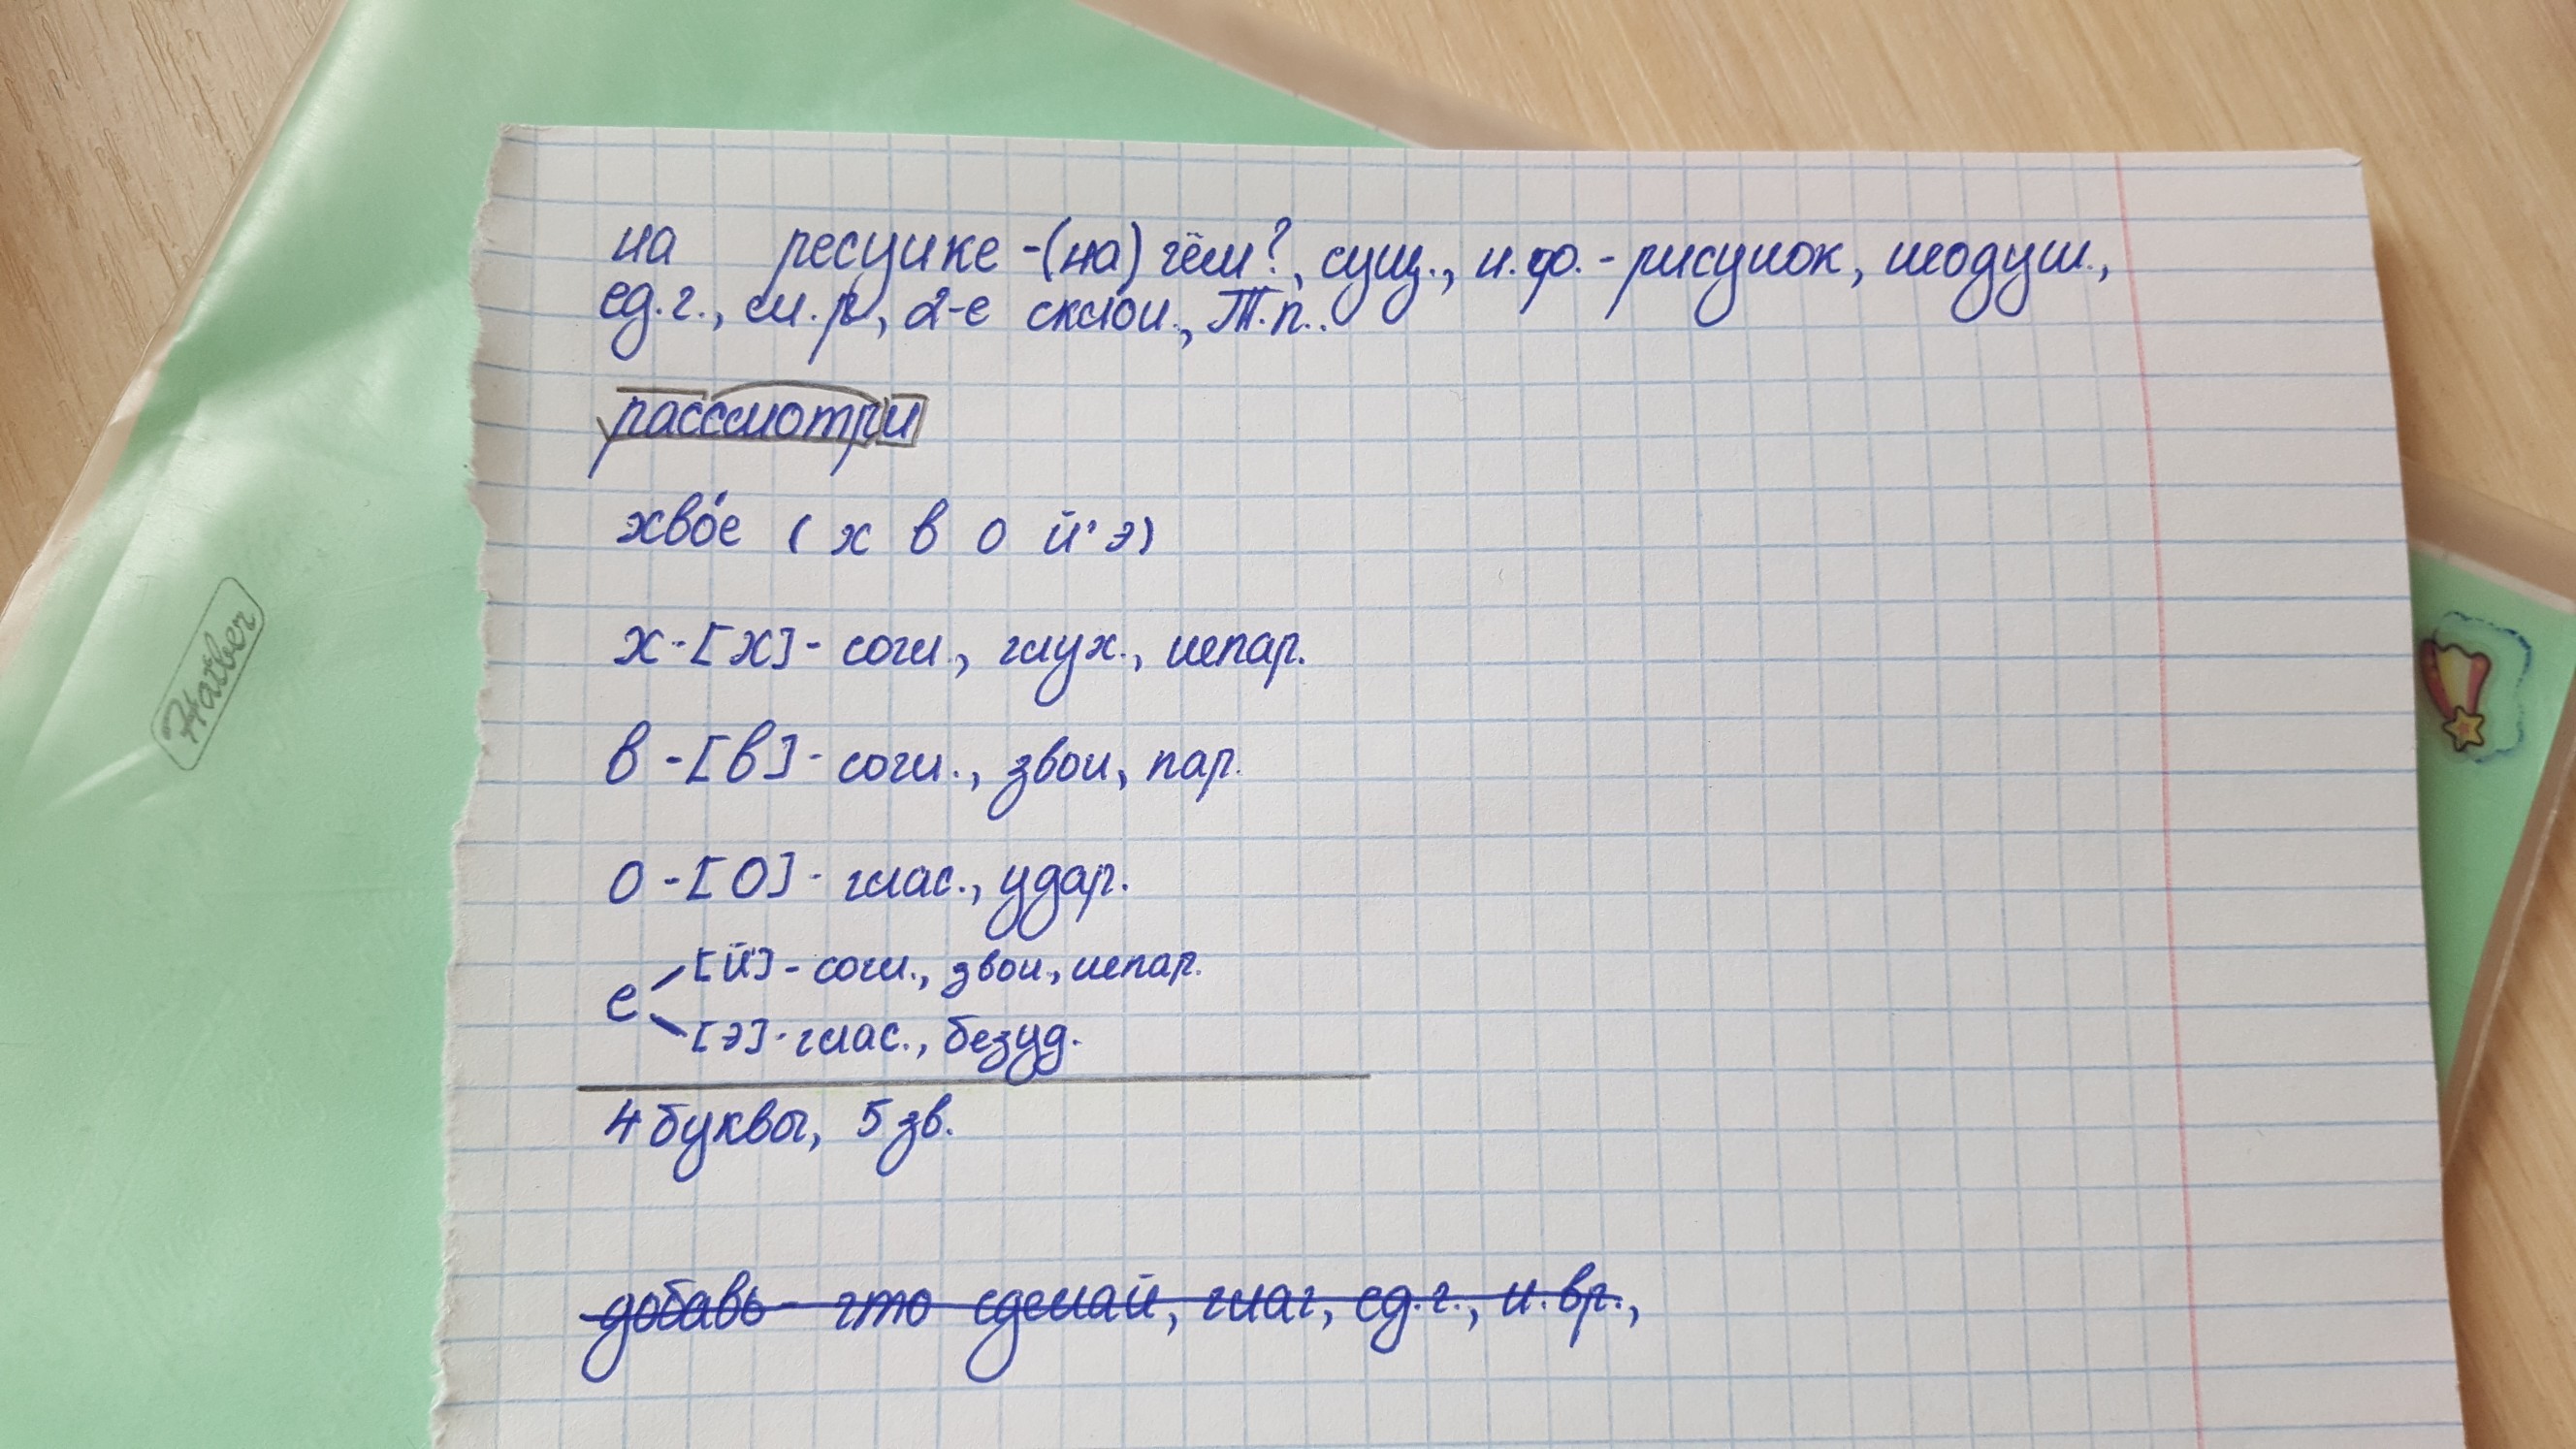 на ресунке - (на) чём?, сущ., н.ф. - рисунок, неодуш.,
ед.ч., м.р, 2-е склон., Т.п..
рассмотри
хво́е ( х в о й' э)
х - [х] - согл., глух., непар.
в - [в] - согл., звон, пар.
о - [о] - глас., удар.
е [й'] - согл., звон, непар.
[э] - глас., безуд.
4 буквы, 5 зв.
добавь - что сделай, глаг, ед.ч., н.вр.,
Hatber